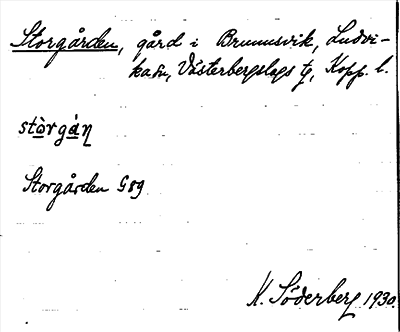 Storgården, gård i Brunnsvik, Ludvi-
ka sn, Västerbergslags tg, Kopp. l.
stòrgáṇ
Storgården G 89
K. Söderberg 1930.